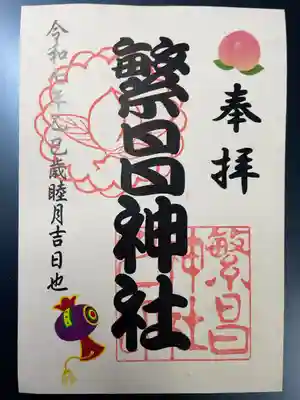 奉拝
繁昌神社
令和七年乙巳歳睦月吉日也
繁昌
神社